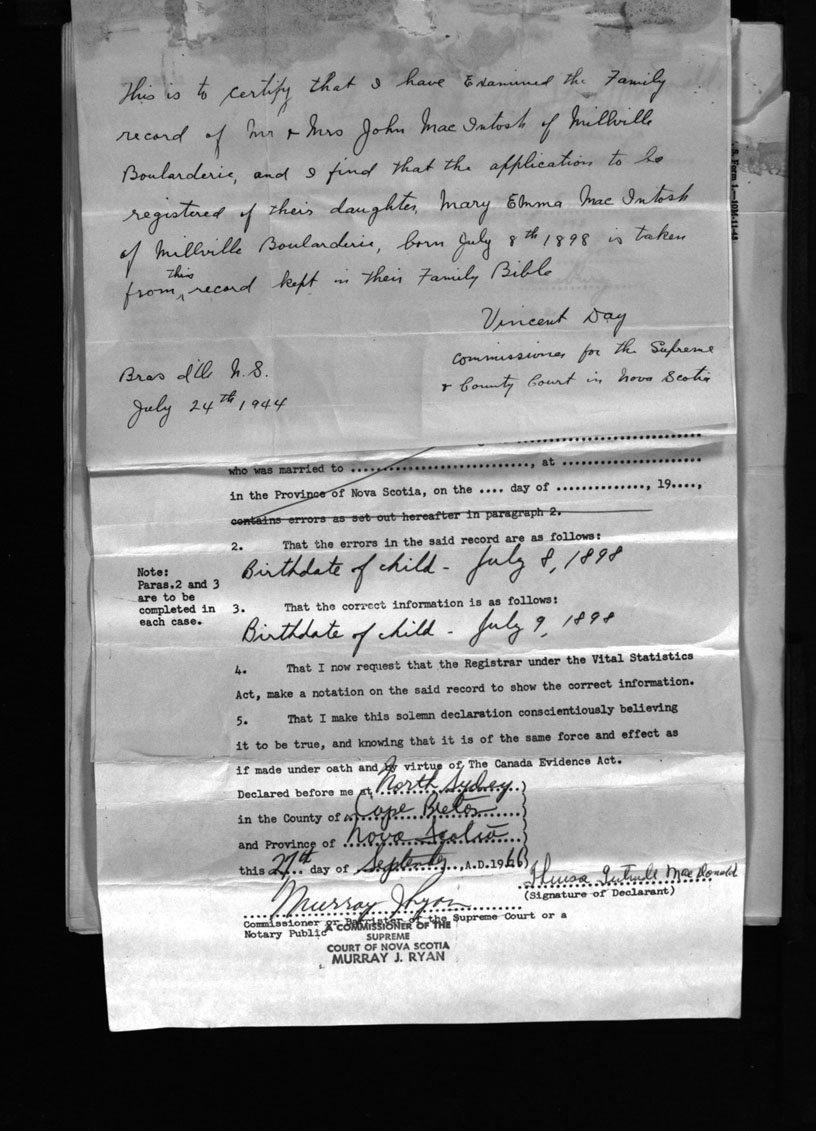 This is to certify that I have Examined the Family
record of Mr & Mrs John MacIntosh of Millville
Boularderie, and I find that the application to be
registered of their daughter, Mary Emma MacIntosh
of Millville Boularderie, born July 8th 1898 is taken
from this record kept in their Family Bible
Vincent Day
commissioner for the Supreme
& County Court in Nova Scotia
Bras d'Or N.S.
July 24th 1944
S. Form 1.—10M-11-44
who was married to ............................, at .....................
in the Province of Nova Scotia, on the .... day of .............., 19....,
contains errors as set out hereafter in paragraph 2.
2. That the errors in the said record are as follows:
Birthdate of child - July 8, 1898
Note:
Paras.2 and 3
are to be
completed in
each case.
3. That the correct information is as follows:
Birthdate of child - July 9, 1898
4. That I now request that the Registrar under the Vital Statistics
Act, make a notation on the said record to show the correct information.
5. That I make this solemn declaration conscientiously believing
it to be true, and knowing that it is of the same force and effect as
if made under oath and by virtue of The Canada Evidence Act.
Declared before me at North Sydney
in the County of Cape Breton
and Province of Nova Scotia
this 27th day of September, A.D.1966
Gertrude MacDonald
(Signature of Declarant)
Murray J Ryan
Commissioner or Barrister of the Supreme Court or a
Notary Public
A COMMISSIONER OF THE
SUPREME
COURT OF NOVA SCOTIA
MURRAY J. RYAN